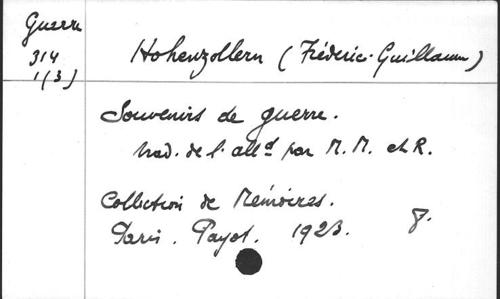 Guerre
314
1(3)
Hohenzollern (Fréderic-Guillaume)
Souvenirs de guerre.
trad. de l'all^d par M. M. et R.
Collection de Mémoires.
Paris. Payot. 1923. 8.